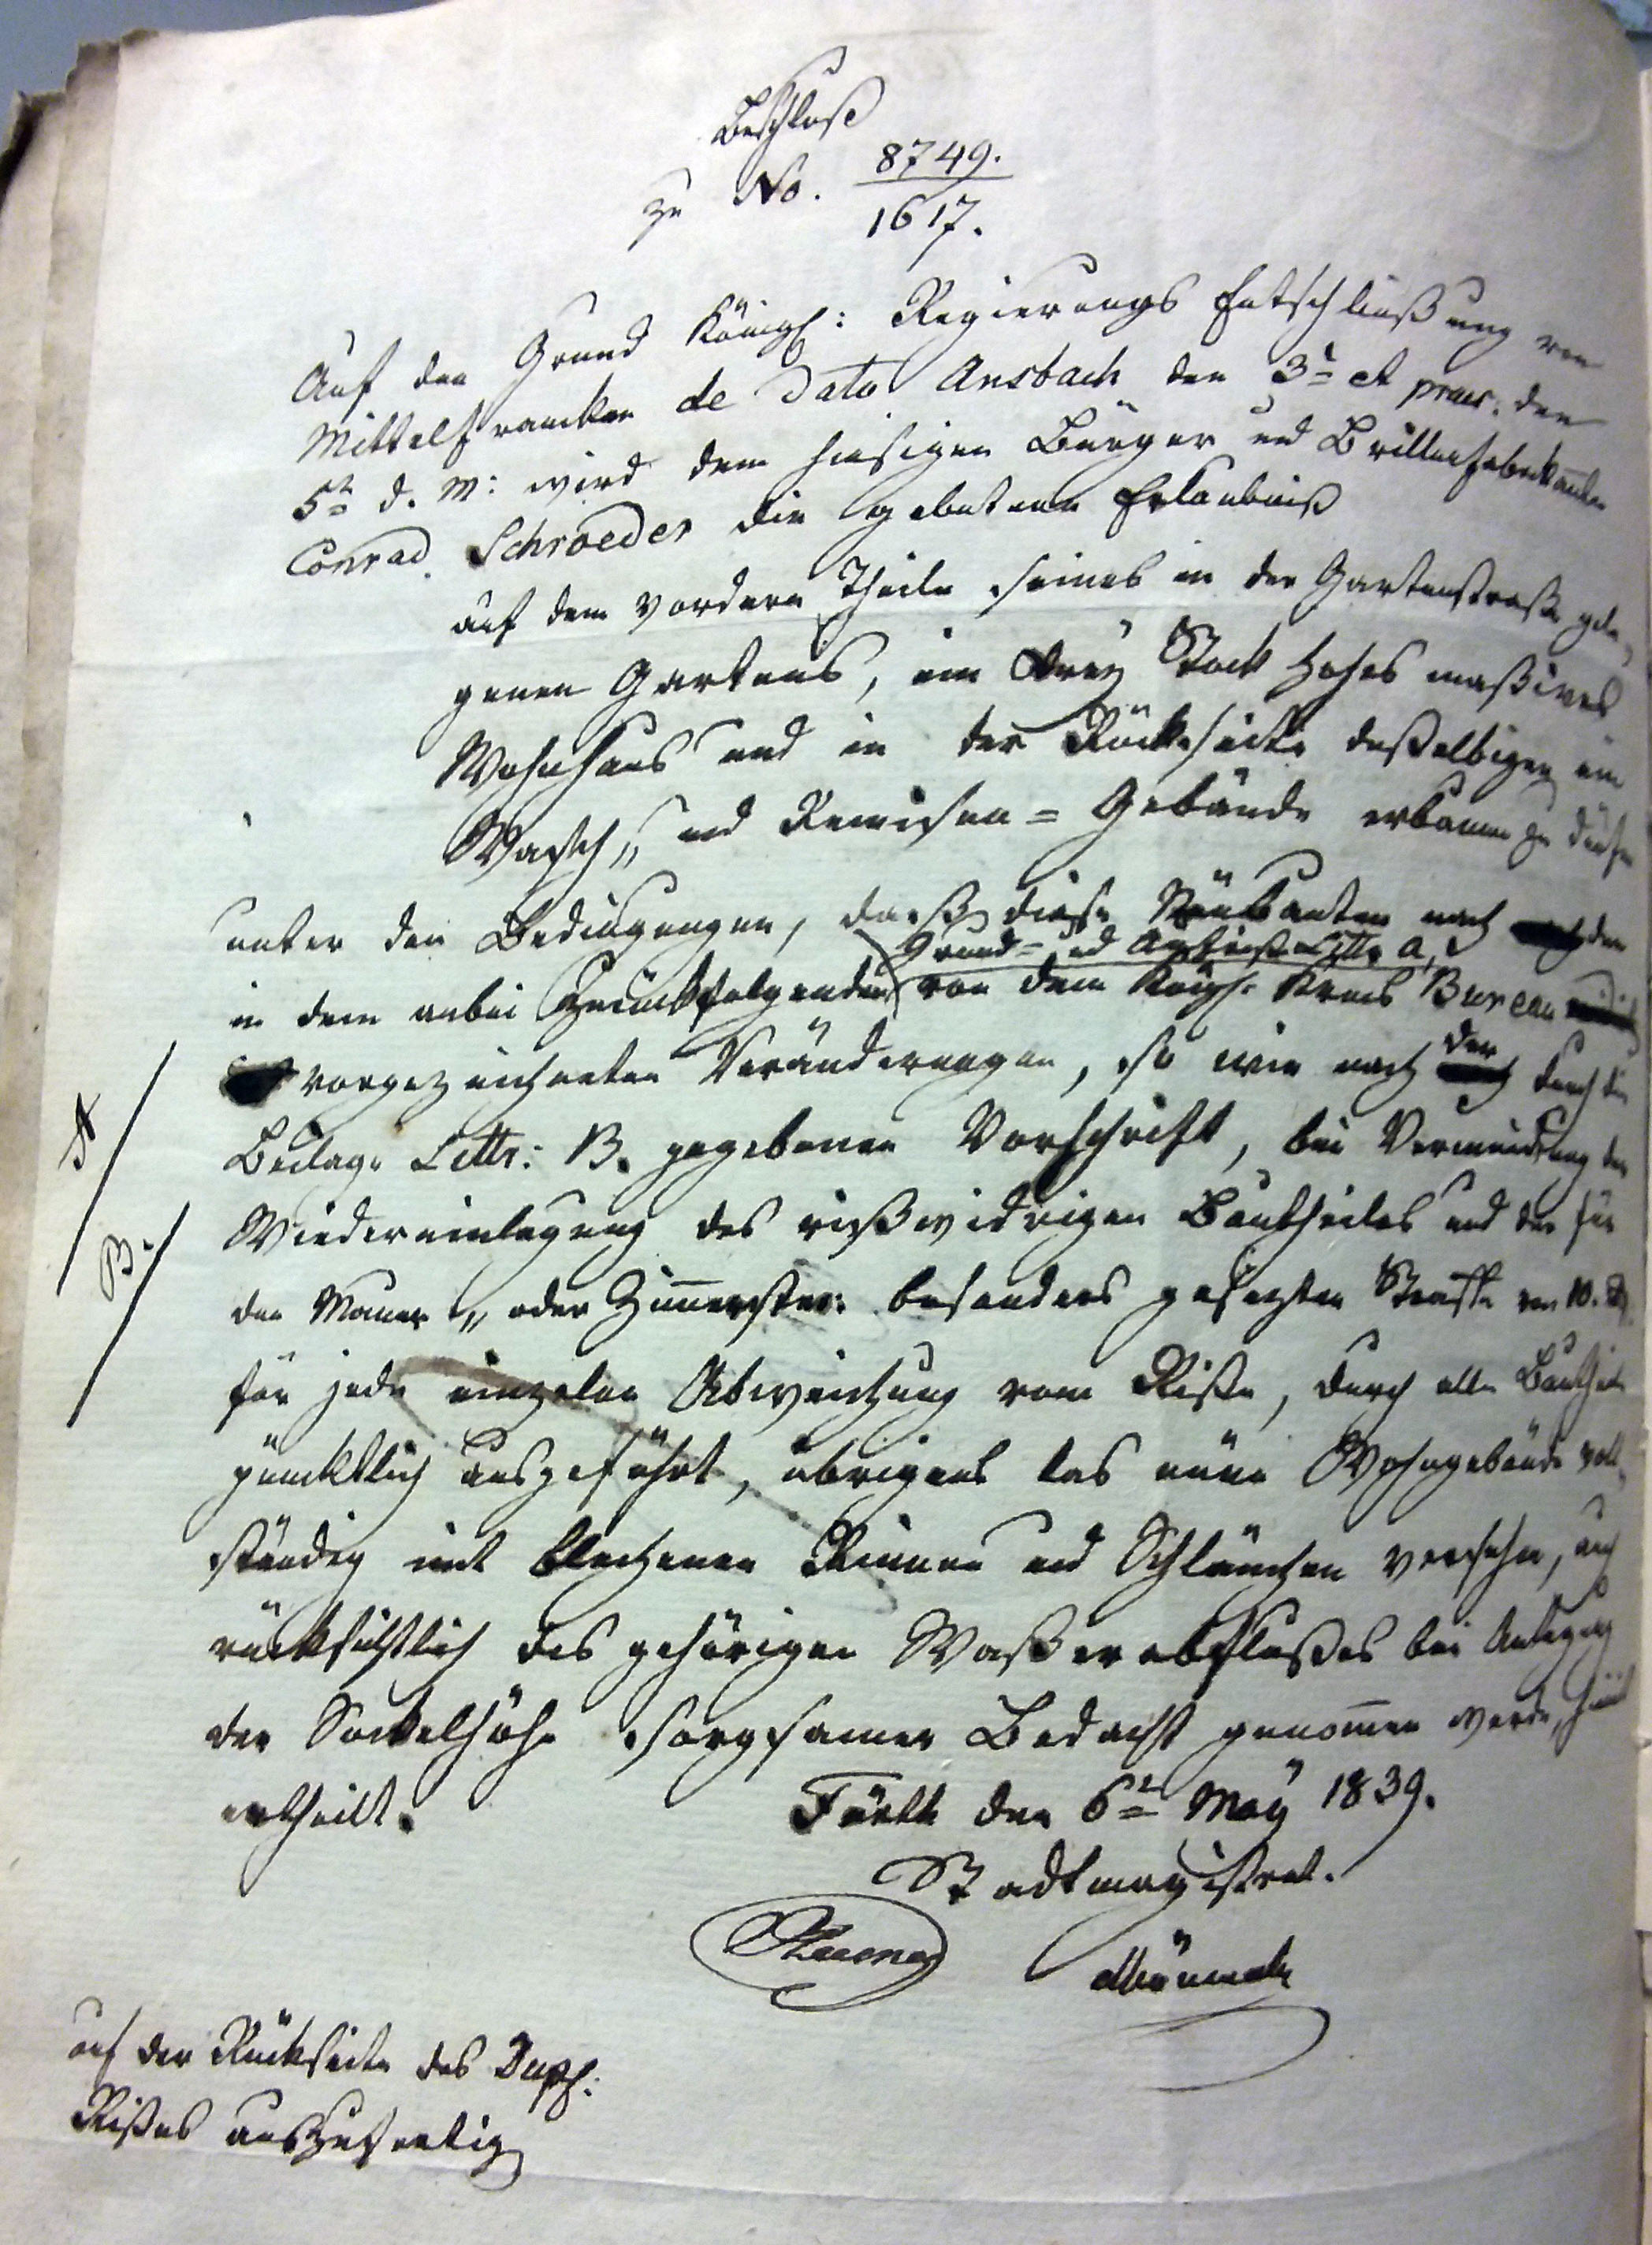 Beschluß
zu No. 8749.
1617.
Auf den Grund Königl: Regierungs Entschließung von
Mittelfrancken de Dato Ansbach den 3t et praes. den
5t d. M: wird dem hiesigen Bürger und Brillenfabrikanten
Conrad Schroeder die gebetene Erlaubniß
auf dem vordern Theile seines in der Gartenstraße gele„
genen Gartens, ein drey Stock hohes maßives
Wohnhaus und in der Rückseite deßelbigen ein
Wasch„ und Remisen=Gebäude erbauen zu dürfen
unter den Bedingungen, daß diese Neubauten nach den
Grund= und Littr. A,
in dem anbei zurückfolgenden von dem Königl. Kreis Bureau
vorgezeichneten Veränderungen, so wie nach der durch die
A
Beilage Littr: B. gegebenen Vorschrift, bei Vermeidung der
B.
Wiedereinlegung des rißwidrigen Bautheiles und der für
den Maurer„ oder Zimmermstr: besonders gesezten Strafe von 10. 
für jede einzelne Abweichung vom Riße, durch alle Bautheile
pünktlich ausgeführt, übrigens das neue Wohngebäude voll„
ständig mit blechenen Rinnen und Schläuchen versehen, auch
rücksichtlich des gehörigen Waßerabflußes bei Anlegung
der Sockelhöhe sorgsamer Bedacht genommen werde, hiemit
ertheilt.
Fürth den 6t May 1839.
Stadtmagistrat.
auf der Rückseite des Dupl:
Rißes auszufertigen